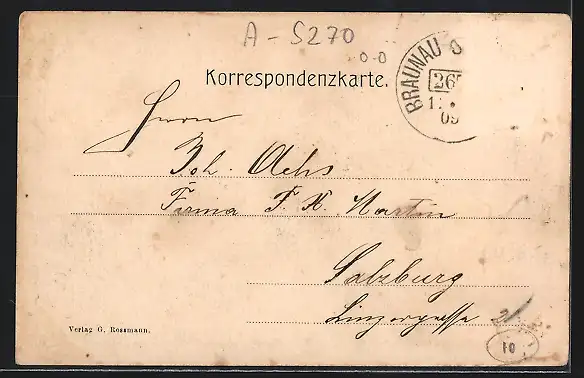 A - 5270
0-0
Korrespondenzkarte.
BRAUNAU
26
1
09
Herrn
Joh. Ochs
Firma F. X. Martin
Salzburg
Linzergasse
Verlag G. Rossmann.
10